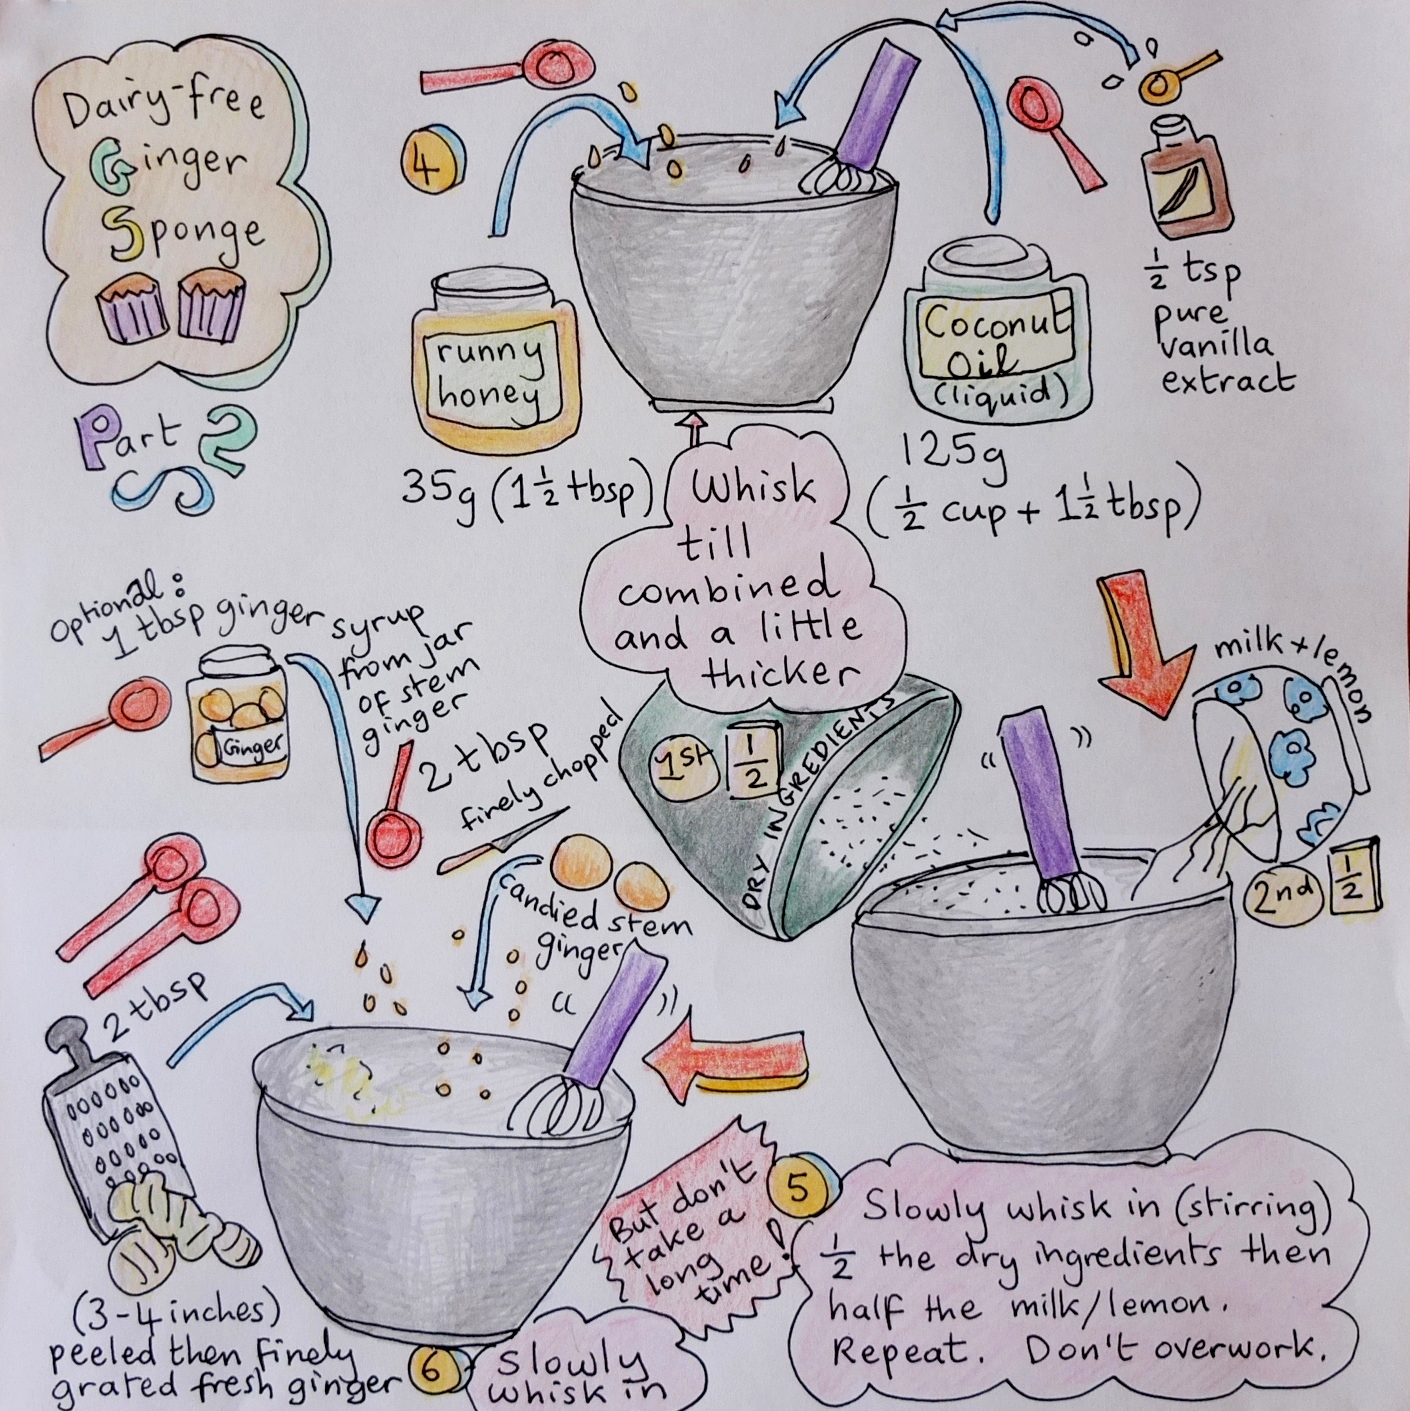 Dairy-free
Ginger
Sponge
Part 2
4
runny
honey
35g (1 1/2 tbsp)
Coconut
Oil
(liquid)
125g
(1/2 cup + 1 1/2 tbsp)
1/2 tsp
pure
vanilla
extract
Whisk
till
combined
and a little
thicker
1st 1/2
DRY INGREDIENTS
milk + lemon
2nd 1/2
5
Slowly whisk in (stirring)
1/2 the dry ingredients then
half the milk/lemon.
Repeat. Don't overwork.
But don't
take a
long
time!
optional:
1 tbsp ginger
syrup
from jar
of stem
ginger
Ginger
2 tbsp
finely chopped
candied stem
ginger
2 tbsp
(3-4 inches)
peeled then finely
grated fresh ginger
6
Slowly
whisk in